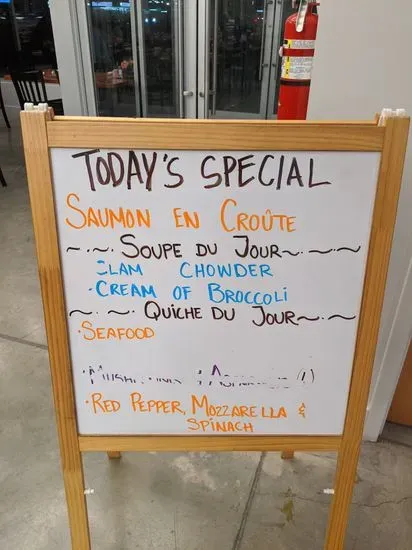 TODAY'S SPECIAL
SAUMON EN CROÛTE
~.~. SOUPE DU JOUR ~.~.~
CLAM CHOWDER
·CREAM OF BROCCOLI
~.~. QUICHE DU JOUR ~.~
·SEAFOOD
·RED PEPPER, MOZZARELLA &
SPINACH